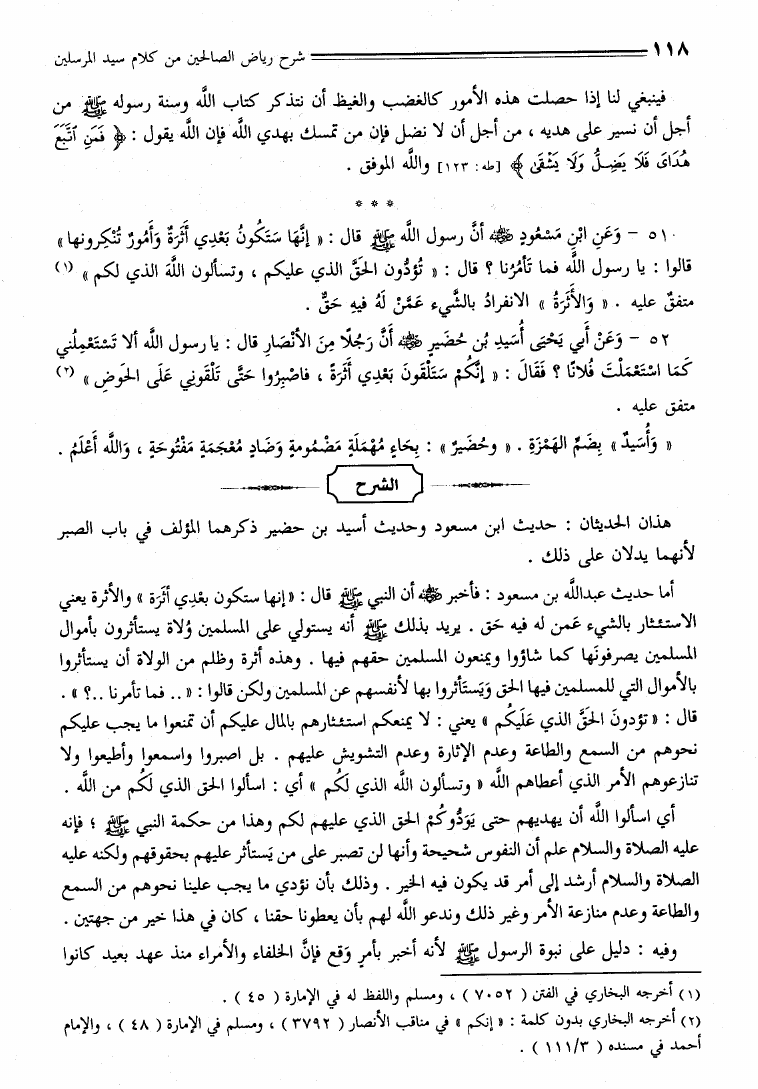 ١١٨ شرح رياض الصالحين من كلام سيد المرسلين
فينبغي لنا إذا حصلت هذه الأمور كالغضب والغيظ أن نتذكر كتاب اللَّه وسنة رسوله ﷺ من
أجل أن نسير على هديه ، من أجل أن لا نضل فإن من تمسك بهدي اللَّه فإن اللَّه يقول : ﴿ فَمَنِ ٱتَّبَعَ
هُدَايَ فَلَا يَضِلُّ وَلَا يَشْقَىٰ ﴾ [طه: ١٢٣] واللَّه الموفق .
* * *
٥١ - وَعَنِ ابْنِ مَسْعُودٍ رضي الله عنه أنَّ رسول اللَّه ﷺ قال : « إنَّهَا سَتَكُونُ بَعْدِي أَثَرَةٌ وَأُمُورٌ تُنْكِرونها »
قالوا : يا رسول اللَّه فما تَأْمُرُنا ؟ قال : « تُؤدُّون الحَقَّ الذي عليكم ، وتسألون اللَّهَ الذي لكم » (١)
متفقٌ عليه . « وَالأَثَرَةُ » الانفرادُ بالشَّيء عَمَّنْ لَهُ فيهِ حَقٌّ .
٥٢ - وَعَنْ أبي يَحْيَى أُسَيدِ بُن حُضَيرٍ رضي الله عنه أَنَّ رَجُلًا مِنَ الأَنْصَارِ قال : يا رسول اللَّه ألا تَسْتَعْمِلُني
كَمَا اسْتَعْمَلْتَ فُلانًا ؟ فَقَالَ : « إنَّكُمْ سَتَلْقَونَ بَعْدِي أَثَرَةً ، فاصْبِرُوا حَتَّى تَلْقَوني عَلَى الحَوضِ » (٢)
متفق عليه .
« وَأُسَيدٌ » بِضَمِّ الهَمْزَةِ . « وحُضَيرٌ » : بِحَاءٍ مُهْمَلَةٍ مَضْمُومةٍ وَضَادٍ مُعْجَمَةٍ مَفْتُوحَةٍ ، وَاللَّه أَعْلَمُ .
الشرح
هذان الحديثان : حديث ابن مسعود وحديث أسيد بن حضير ذكرهما المؤلف في باب الصبر
لأنهما يدلان على ذلك .
أما حديث عبداللَّه بن مسعود : فأخبر رضي الله عنه أن النبي ﷺ قال : «إنها ستكون بعْدِي أثَرَة » والأثرة يعني
الاستئثار بالشيء عَمن له فيه حَق . يريد بذلك ﷺ أنه يستولي على المسلمين وُلاة يستأثرون بأموال
المسلمين يصرفونَها كما شاؤوا ويمنعون المسلمين حقهم فيها . وهذه أثرة وظلم من الولاة أن يستأثروا
بالأموال التي للمسلمين فيها الحق وَيَستَأثروا بها لأنفسهم عن المسلمين ولكن قالوا : «.. فما تأمرنا ..؟ » .
قال : « تؤدونَ الحَقَّ الذي عَلَيكُم » يعني : لا يمنعكم استئثارهم بالمال عليكم أن تمنعوا ما يجب عليكم
نحوهم من السمع والطاعة وعدم الإثارة وعدم التشويش عليهم . بل اصبروا واسمعوا وأطيعوا ولا
تنازعوهم الأمر الذي أعطاهم اللَّه « وتسألون اللَّه الذي لَكُم » أي : اسألوا الحق الذي لَكُم من اللَّه .
أي اسألوا اللَّه أن يهديهم حتى يَوَدُّوكُمْ الحق الذي عليهم لكم وهذا من حكمة النبي ﷺ ؛ فإنه
عليه الصلاة والسلام علم أن النفوس شحيحة وأنها لن تصبر على من يَستأثر عليهم بحقوقهم ولكنه عليه
الصلاة والسلام أرشد إلى أمر قد يكون فيه الخير . وذلك بأن نؤدي ما يجب علينا نحوهم من السمع
والطاعة وعدم منازعة الأمر وغير ذلك وندعو اللَّه لهم بأن يعطونا حقنا ، كان في هذا خير من جهتين .
وفيه : دليل على نبوة الرسول ﷺ لأنه أخبر بأمرٍ وَقع فإنَّ الخلفاء والأمراء منذ عهد بعيد كانوا
(١) أخرجه البخاري في الفتن ( ٧٠٥٢ ) ، ومسلم واللفظ له في الإمارة ( ٤٥ ) .
(٢) أخرجه البخاري بدون كلمة : « إنكم » في مناقب الأنصار ( ٣٧٩٢ ) ، ومسلم في الإمارة ( ٤٨ ) ، والإمام
أحمد في مسنده ( ١١١/٣ ) .